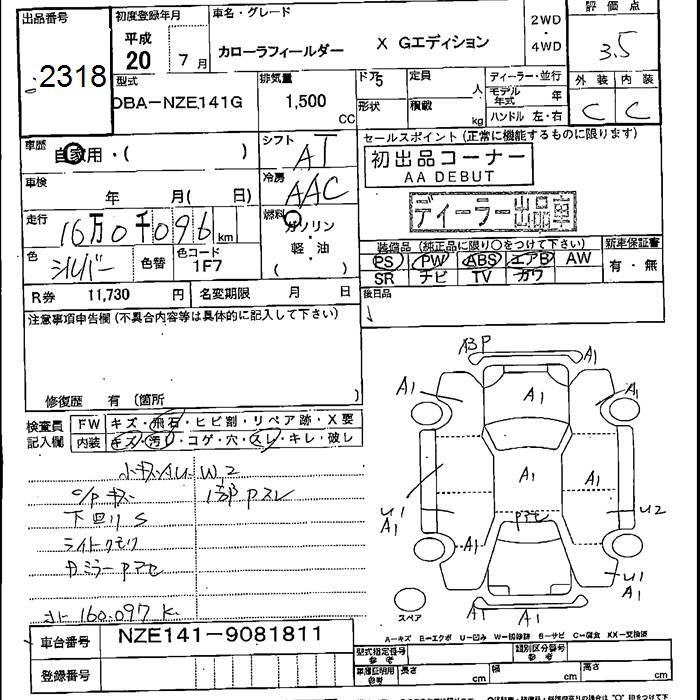 出品番号
2318
初度登録年月
平成
20 7月
車名・グレード
カローラフィールダー X Gエディション
2WD
・
4WD
評価点
3.5
型式
DBA-NZE141G
排気量
1,500
CC
ドア
5
形状
定員
人
積載
kg
ディーラー・並行
モデル年式 年
ハンドル 左・右
外装 内装
C C
車歴
自家用・( )
シフト
AT
車検
年 月( 日)
冷房
AAC
走行
16万0千096 km
燃料
ガソリン
・
軽・油
( )
色
シルバー
色替
色コード
1F7
R券 11,730 円
名変期限 月 日
セールスポイント(正常に機能するものに限ります)
初出品コーナー
AA DEBUT
ディーラー出品車
装備品(純正品に限り○をつけて下さい)
新車保証書
PS PW ABS エアB AW
SR ナビ TV カワ
有・無
後日品
注意事項申告欄(不具合内容等は具体的に記入して下さい)
修復歴 有 (箇所 )
検査員
記入欄
FW キズ・飛石・ヒビ割・リペア跡・X要
内装 キズ・汚れ・コゲ・穴・スレ・キレ・破レ
小キズAU W2
下回りS
ライトクモリ
160,097 K
A3 P
A1
A1
A1
A1
A1
A1
A1
U1
A1
U2
A1
U1
A1
A1
スペア
A-キズ E-エクボ U-凹み W-補修跡 S-サビ C-腐食 XX-交換済
車台番号 NZE141-9081811
登録番号
型式指定番号
参考
類別区分番号
参考
車庫証明用
参考
長さ cm
幅 cm
高さ cm